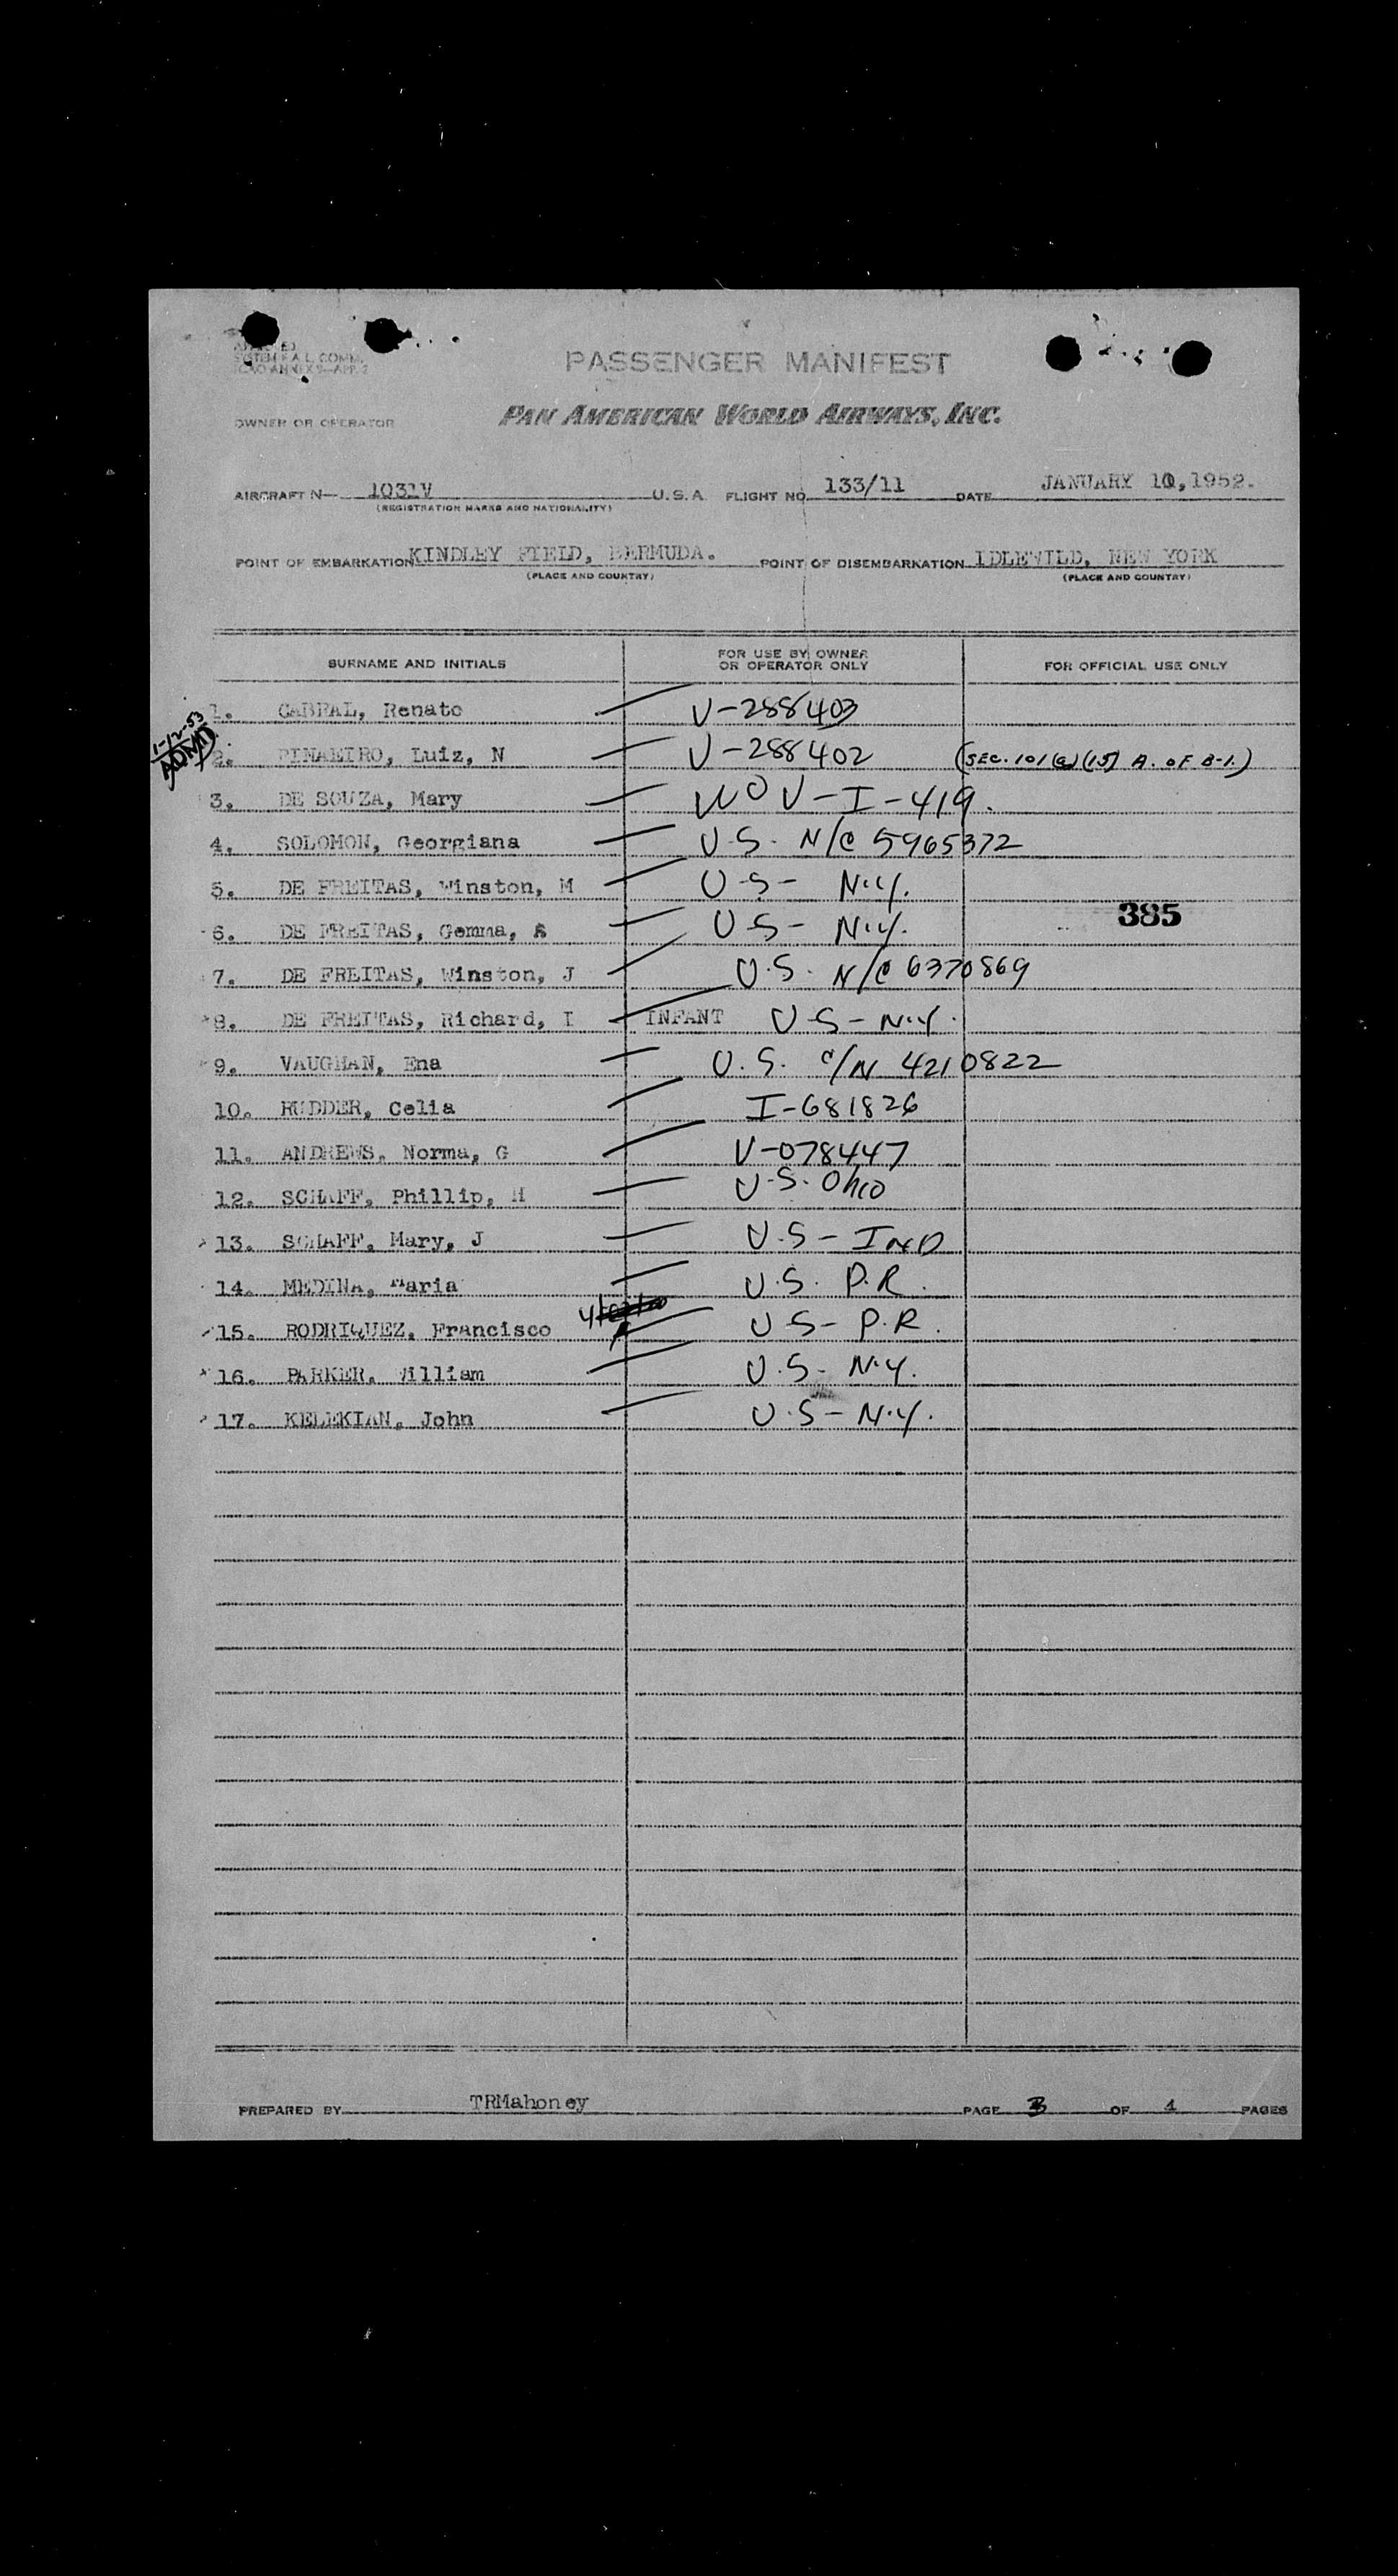 SYSTEM F.A.L. COMM.
ICAO ANNEX 9—APP. 2
PASSENGER MANIFEST
OWNER OR OPERATOR PAN AMERICAN WORLD AIRWAYS, INC.
AIRCRAFT N— 1031V U.S.A. FLIGHT NO. 133/11 DATE JANUARY 10, 1952.
(REGISTRATION MARKS AND NATIONALITY)
POINT OF EMBARKATION KINDLEY FIELD, BERMUDA. POINT OF DISEMBARKATION IDLEWILD, NEW YORK
(PLACE AND COUNTRY) (PLACE AND COUNTRY)
SURNAME AND INITIALS FOR USE BY OWNER OR OPERATOR ONLY FOR OFFICIAL USE ONLY
1. CABRAL, Renato V-288403
1-12-53
ADMD
2. PINAEIRO, Luiz, N V-288402 (SEC. 101(a)(15) A. OF B-1.)
3. DE SOUZA, Mary WOV-I-419.
4. SOLOMON, Georgiana U.S. N/C 5965372
5. DE FREITAS, Winston, M U-S- N.Y.
385
6. DE FREITAS, Gemma, A U-S- N.Y.
7. DE FREITAS, Winston, J U.S. N/C 6370869
8. DE FREITAS, Richard, I INFANT U-S-N.Y.
9. VAUGHAN, Ena U.S. C/N 4210822
10. RUDDER, Celia I-681826
11. ANDREWS, Norma, G V-078447
12. SCHAFF, Phillip, H U-S. Ohio
13. SCHAFF, Mary, J U.S-IND
14. MEDINA, Maria U.S. P.R.
15. RODRIQUEZ, Francisco U-S-P.R.
16. PARKER, William U.S-N.Y.
17. KELEKIAN, John U.S-N.Y.
PREPARED BY TRMahoney PAGE 3 OF 4 PAGES